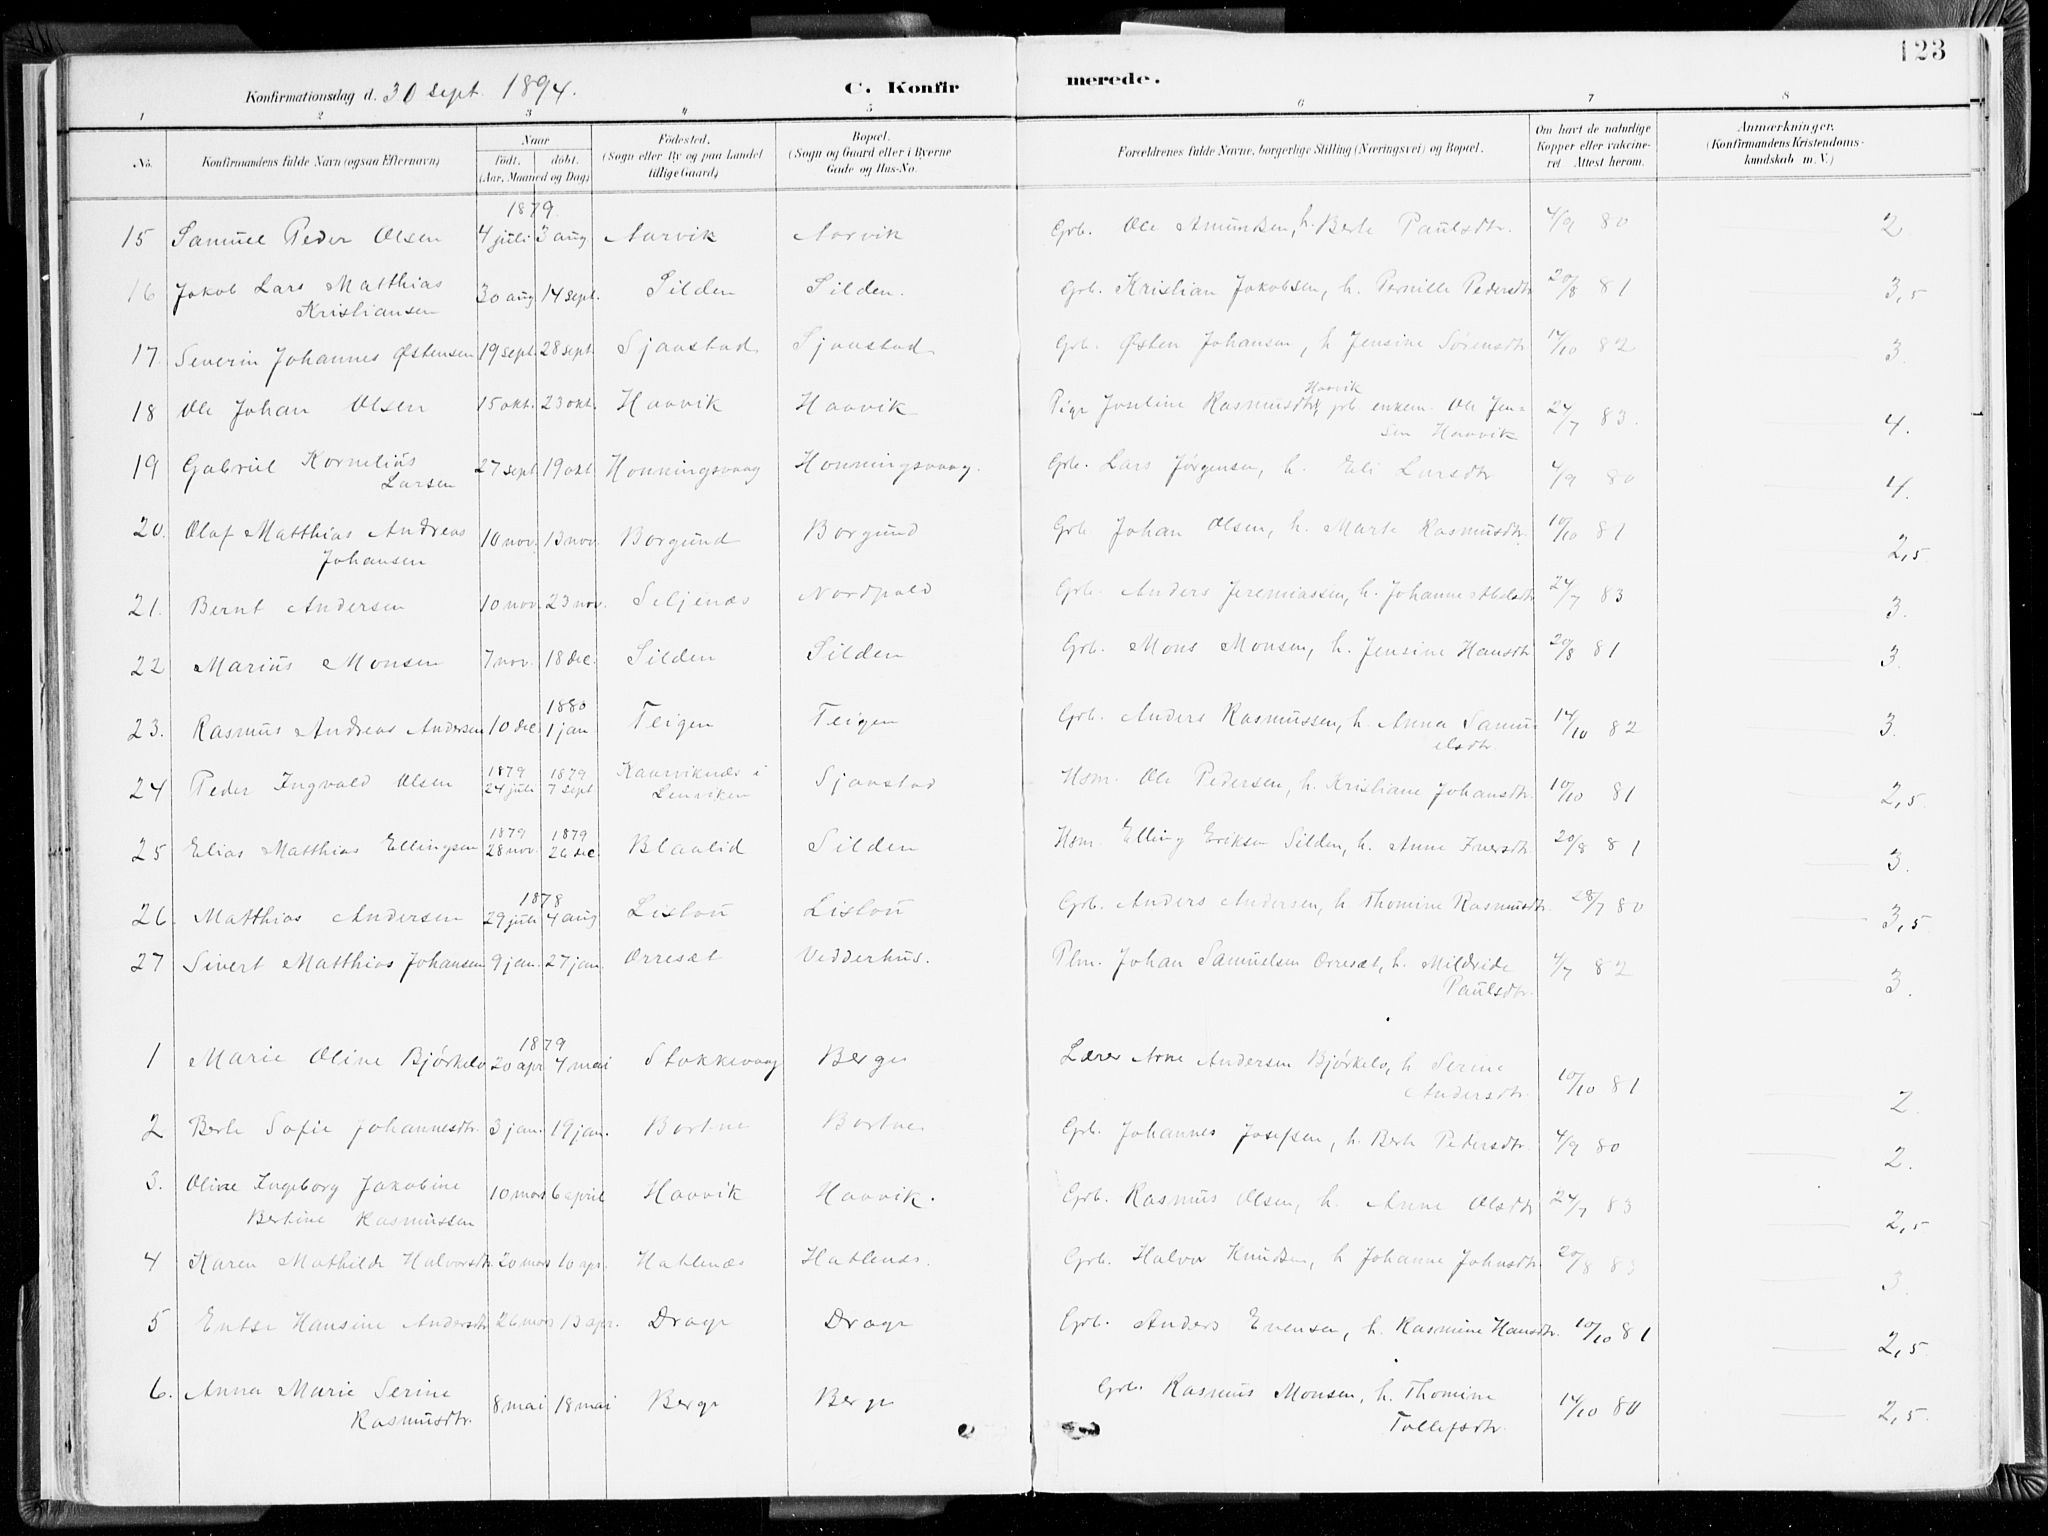 123
Konfirmationsdag d. 30 sept. 1894.
C. Konfirmerede.
1 2 3 4 5 6 7 8
No. Konfirmandens fulde Navn (ogsaa Efternavn) Naar født. døbt. (Aar, Maaned og Dag) Fødested. (Sogn eller By og paa Landet tillige Gaard) Bopæl. (Sogn og Gaard eller i Byerne Gade og Hus-No. Forældrenes fulde Navne, borgerlige Stilling (Næringsvei) og Bopæl. Om havt de naturlige Kopper eller vakcineret. Attest herom. Anmærkninger. (Konfirmandens Kristendomskundskab m. V.)
1879.
15 Samuel Peder Olsen 4 juli 3 aug Aarvik Aarvik Grb. Ole Amundsen, h. Berte Paulsdtr. 4/9 80 2
16 Jakob Lars Matthias 30 aug 14 sept. Silden Silden. Grb. Kristian Jakobsen, h. Pernille Pedersdtr 20/8 81 3,5
Kristiansen
17. Severin Johannes Østensen 19 sept. 28 sept. Sjaastad Sjaastad Grb. Østen Johansen, h Jensine Sørensdtr 14/10 82 3.
18 Ole Johan Olsen 15 okt. 23 okt. Haavik Haavik Pige Joseline Rasmusdtr Haavik, grb. enkem. Ole Jen= 24/7 83. 4.
sen Haavik
19 Gabriel Kornelius 27 sept 19 okt. Honningsvaag Honningsvaag. Grb. Lars Jørgensen, h. Eli Larsdtr 4/9 80 4.
Larsen
20. Olaf Matthias Andreas 10 nov. 13 nov. Borgund Borgund Grb. Johan Olsen, h. Marte Rasmusdtr. 10/10 81 2,5
Johansen
21. Bernt Andersen 10 nov. 23 nov. Seljenæs Nordpold Grb. Anders Jeremiassen, h. Johanne Abelsdtr 24/7 83 3.
22 Marius Monsen 7 nov. 18 dec. Silden Silden Grb. Mons Monsen, h. Jensine Hansdtr 20/8 81 3.
1880
23. Rasmus Andreas Andersen 10 dec. 1 jan Teigen Teigen Grb. Anders Rasmussen, h. Anna Samu- 14/10 82 3.
elsdtr.
1879 1879
24 Peder Ingvald Olsen 24 juli 7 sept Kaarviknæs i Lenviken Sjaastad Hsm. Ole Pedersen, h. Kristiane Johansdtr. 10/10 81 2,5.
1879 1879
25 Elias Matthias Ellingsen 28 nov. 26 dec. Blaalid Silden Hsm. Elling Eriksen Silden, h. Anne Iversdtr. 20/8 81 3.
1878
26. Matthias Andersen 29 juli 4 aug Listou Listou Grb. Anders Andersen, h Thomine Rasmusdtr. 28/7 80 3,5
27 Sivert Matthias Johansen 9 jan. 27 jan. Orresæt Vedderhus. Plm. Johan Samuelsen Orresæt, h. Mildride 4/7 82 3.
Paulsdtr.
1879
1 Marie Oline Bjørkelo 20 apr 4 mai Stokkevaag Berge Lærer Arne Andersen Bjørkelo, h Serine 10/10 81 2.
Andersdtr.
2 Berte Sofie Johannesdtr. 3 jan. 19 jan. Bortne Bortne Grb. Johannes Josefsen, h. Berte Pedersdtr. 4/9 80 2.
3. Oline Ingeborg Jakobine 10 mars 6 april Haavik Haavik. Grb. Rasmus Olsen, h. Anne Olsdtr 24/7 83 2,5
Bertine Rasmussen
4 Karen Mathilde Halvorsdtr. 20 mars 10 apr. Hatlenæs Hatlenæs. Grb. Halvor Knudsen, h Johanne Johnsdtr 20/8 83 3.
5 Entse Hansine Andersdtr. 26 mars 13 apr. Drage Drage Grb. Anders Evensen, h. Rasmine Hansdtr. 10/10 81 2,5.
6. Anna Marie Serine 8 mai 18 mai Berge Berge Grb. Rasmus Monsen, h. Thomine 14/10 80 2,5.
Rasmusdtr. Tollefsdtr.